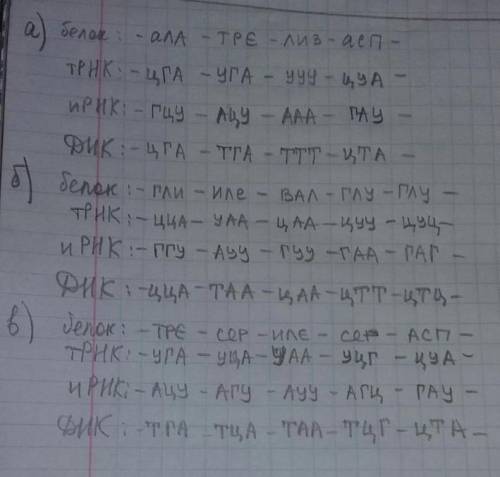 а) белок: - алА - ТРЕ - лиз - асп -
тРНК: - ЦГА - УГА - УУУ - ЦУА -
иРНК: - ГЦУ - АЦУ - ААА - ГАУ -
ДНК: - ЦГА - ТГА - ТТТ - ЦТА -
б) белок: - гли - иле - вал - глу - глу -
тРНК: - ЦЦА - УАА - ЦАА - ЦУУ - ЦУЦ -
иРНК: - ГГУ - АУУ - ГУУ - ГАА - ГАГ -
ДНК: - ЦЦА - ТАА - ЦАА - ЦТТ - ЦТЦ -
в) белок: - ТРЕ - сер - иле - сер - асп -
тРНК: - УГА - УЦА - УАА - УЦГ - ЦУА -
иРНК: - АЦУ - АГУ - АУУ - АГЦ - ГАУ -
ДНК: - ТГА - ТЦА - ТАА - ТЦГ - ЦТА -